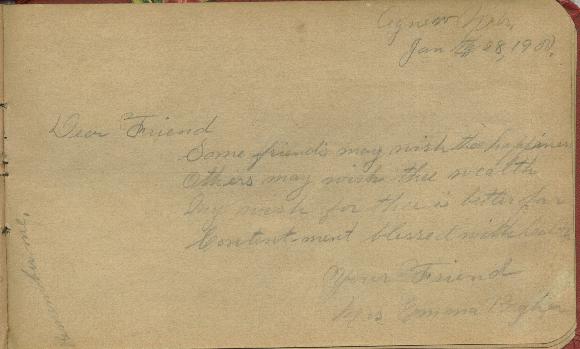 Agnew Nebr.
Jan 28, 190
Dear Friend
Some friends may wish thee happiness
Others may wish thee wealth
My wish for thee is better far
Content-ment blessed with health
Your Friend
Mrs Emma